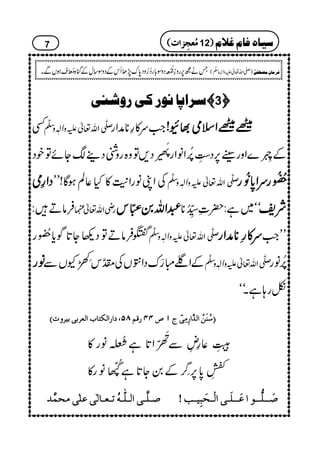 7 سیاہ فام غلام (12 مُعجِزات)
فرمانِ مصطفٰے (صلی اللہ تعالیٰ علیہ والہٖ وسلم) : جس نے مجھ پر روزِ جمعہ دو سو بار دُرُودِ پاک پڑھا اُس کے دو سو سال کے گناہ مُعاف ہوں گے۔
﴿3﴾ سراپا نور کی روشنی
میٹھے میٹھے اسلامی بھائیو! جب سرکارِ نامدار صلَّی اللہ تعالیٰ علیہ واٰلہٖ وسلَّم کسی
کے چہرے اور سینے پر دستِ پُر انوار پھیر دیں تو وہ روشنی دینے لگ جائے تو خود
حُضُورِ سراپا نور صلَّی اللہ تعالیٰ علیہ واٰلہٖ وسلَّم کی اپنی نورانیت کا کیا عالم ہوگا! ’’دارِمی
شریف‘‘ میں ہے: حضرتِ سیِّدُنا عبداللہ بن عبّاس رضی اللہ تعالیٰ عنہما فرماتے ہیں:
’’جب سرکارِ نامدار صلَّی اللہ تعالیٰ علیہ واٰلہٖ وسلَّم گفتگو فرماتے تو دیکھا جاتا گویا حُضُورِ
پُرنور صلَّی اللہ تعالیٰ علیہ واٰلہٖ وسلَّم کے اگلے مبارَک دانتوں کی مقدّس کھڑکیوں سے نور
نکل رہا ہے۔‘‘
(سُنَنُ الدَّارِمِیّ ج ۱ ص ۴۴ رقم ۵۸، دارالکتاب العربی بیروت)
ہیبتِ عارِضِ سے تھرّاتا ہے شُعلہ نور کا
کفشِ پا پر گِر کے بن جاتا ہے گُپّھا نور کا
صَلُّوا عَلَی الْحَبِیب ! صلَّی اللہُ تعالٰی علٰی محمَّد